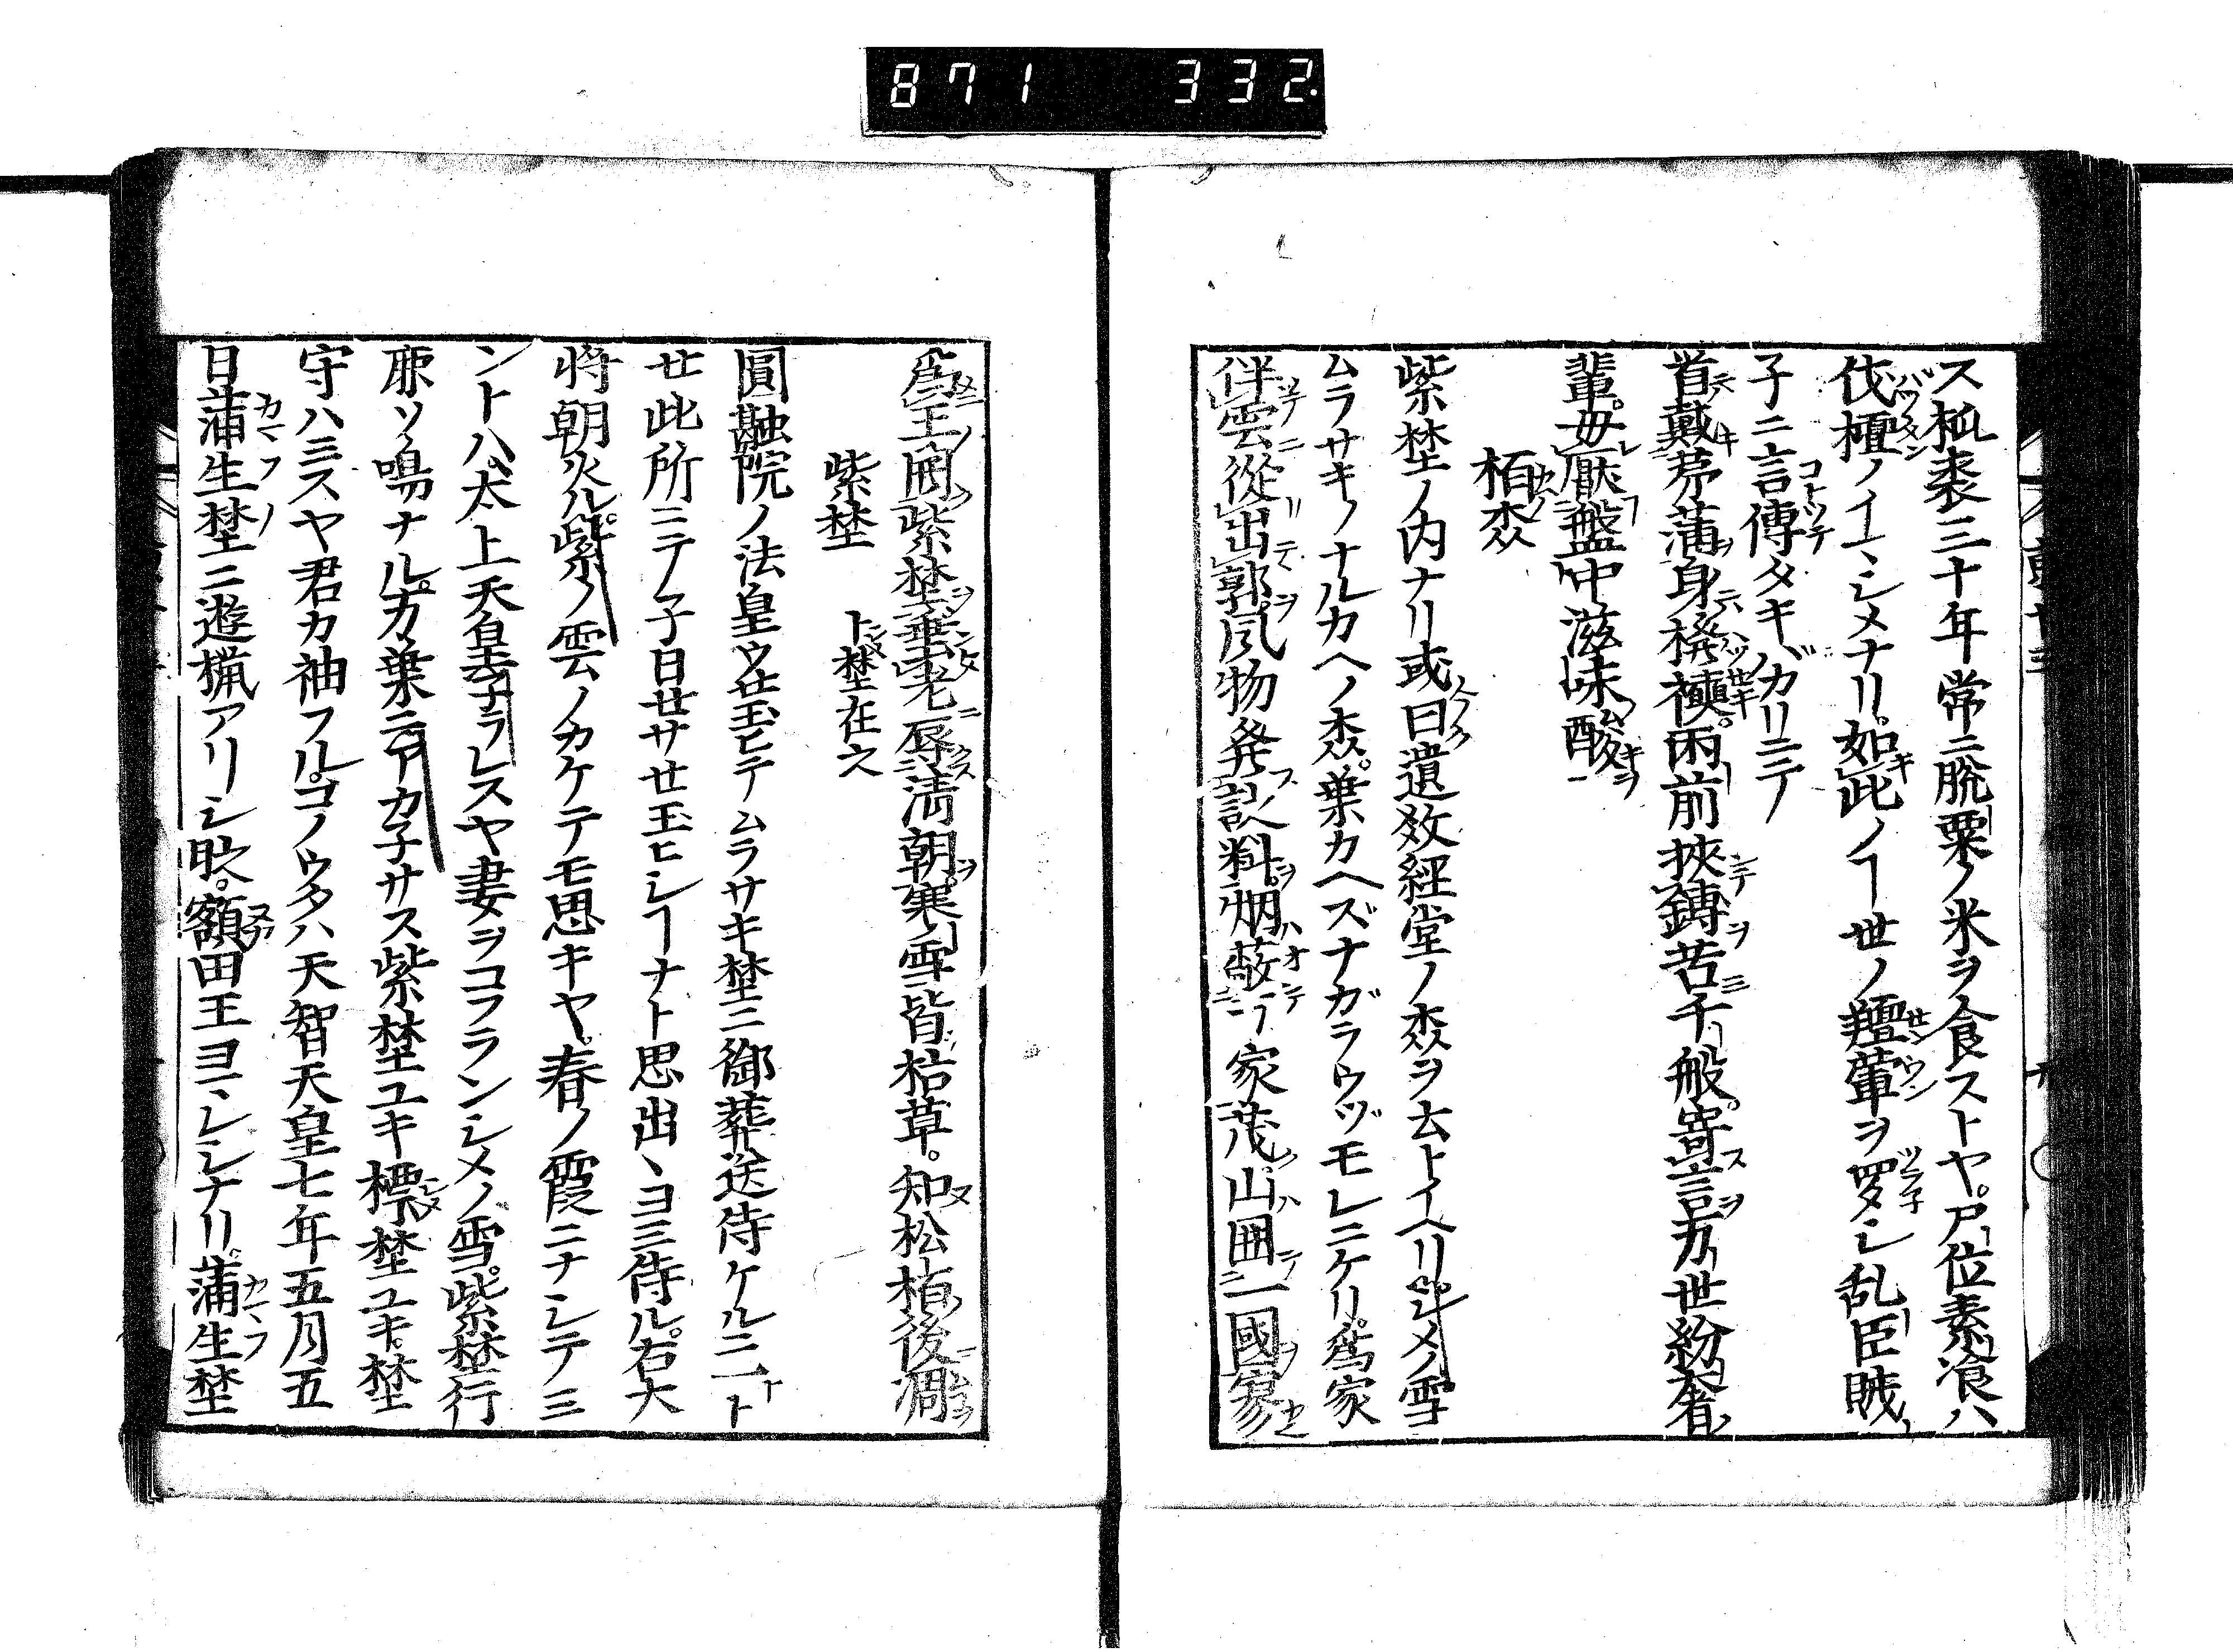 871 332.
ス柧裘三十年常ニ脱粟ノ米ヲ食ストヤ尸位素飡ハ
伐檀ノイマシメナリ如此ノヿ世ノ羶葷ヲ罗シ乱臣賊
子ニ言傳タキバカリニテ
首戴茅蒲身襏襫雨前挾鏄苦千般寄言乃世紛奢
輩毋厭盤中滋味酸
栢森
紫埜ノ内ナリ或曰遺敎経堂ノ森ヲ云トイヘリシメノ雪
ムラサキノナルカヘノ森葉カヘズナガラウヅモレニケリ為家
伴雲從出郭風物発談料烟蔽一家茂山囲二國寡
為王岡紫埜垂老辱淸朝寒雪皆枯草知松栢後凋
紫埜 卜埜在之
圓融院ノ法皇ウセ玉ヒテムラサキ埜ニ御葬送侍ケルニ一トト
セ此所ニテ子日セサセ玉ヒシヿナト思出ヽヨミ侍ル右大
将朝光ル紫ノ雲ノカケテモ思キヤ春ノ霞ニナシテミ
ントハ太上天皇シラレスヤ妻ヲコフランシメノ雪紫埜行
鹿ソ鳴ナル万葉ニアカ子サス紫埜ユキ標埜ユキ埜
守ハミスヤ君カ袖フルコノウタハ天智天皇七年五月五
日蒲生埜ニ遊猟アリシ時額田王ヨマレシナリ蒲生埜